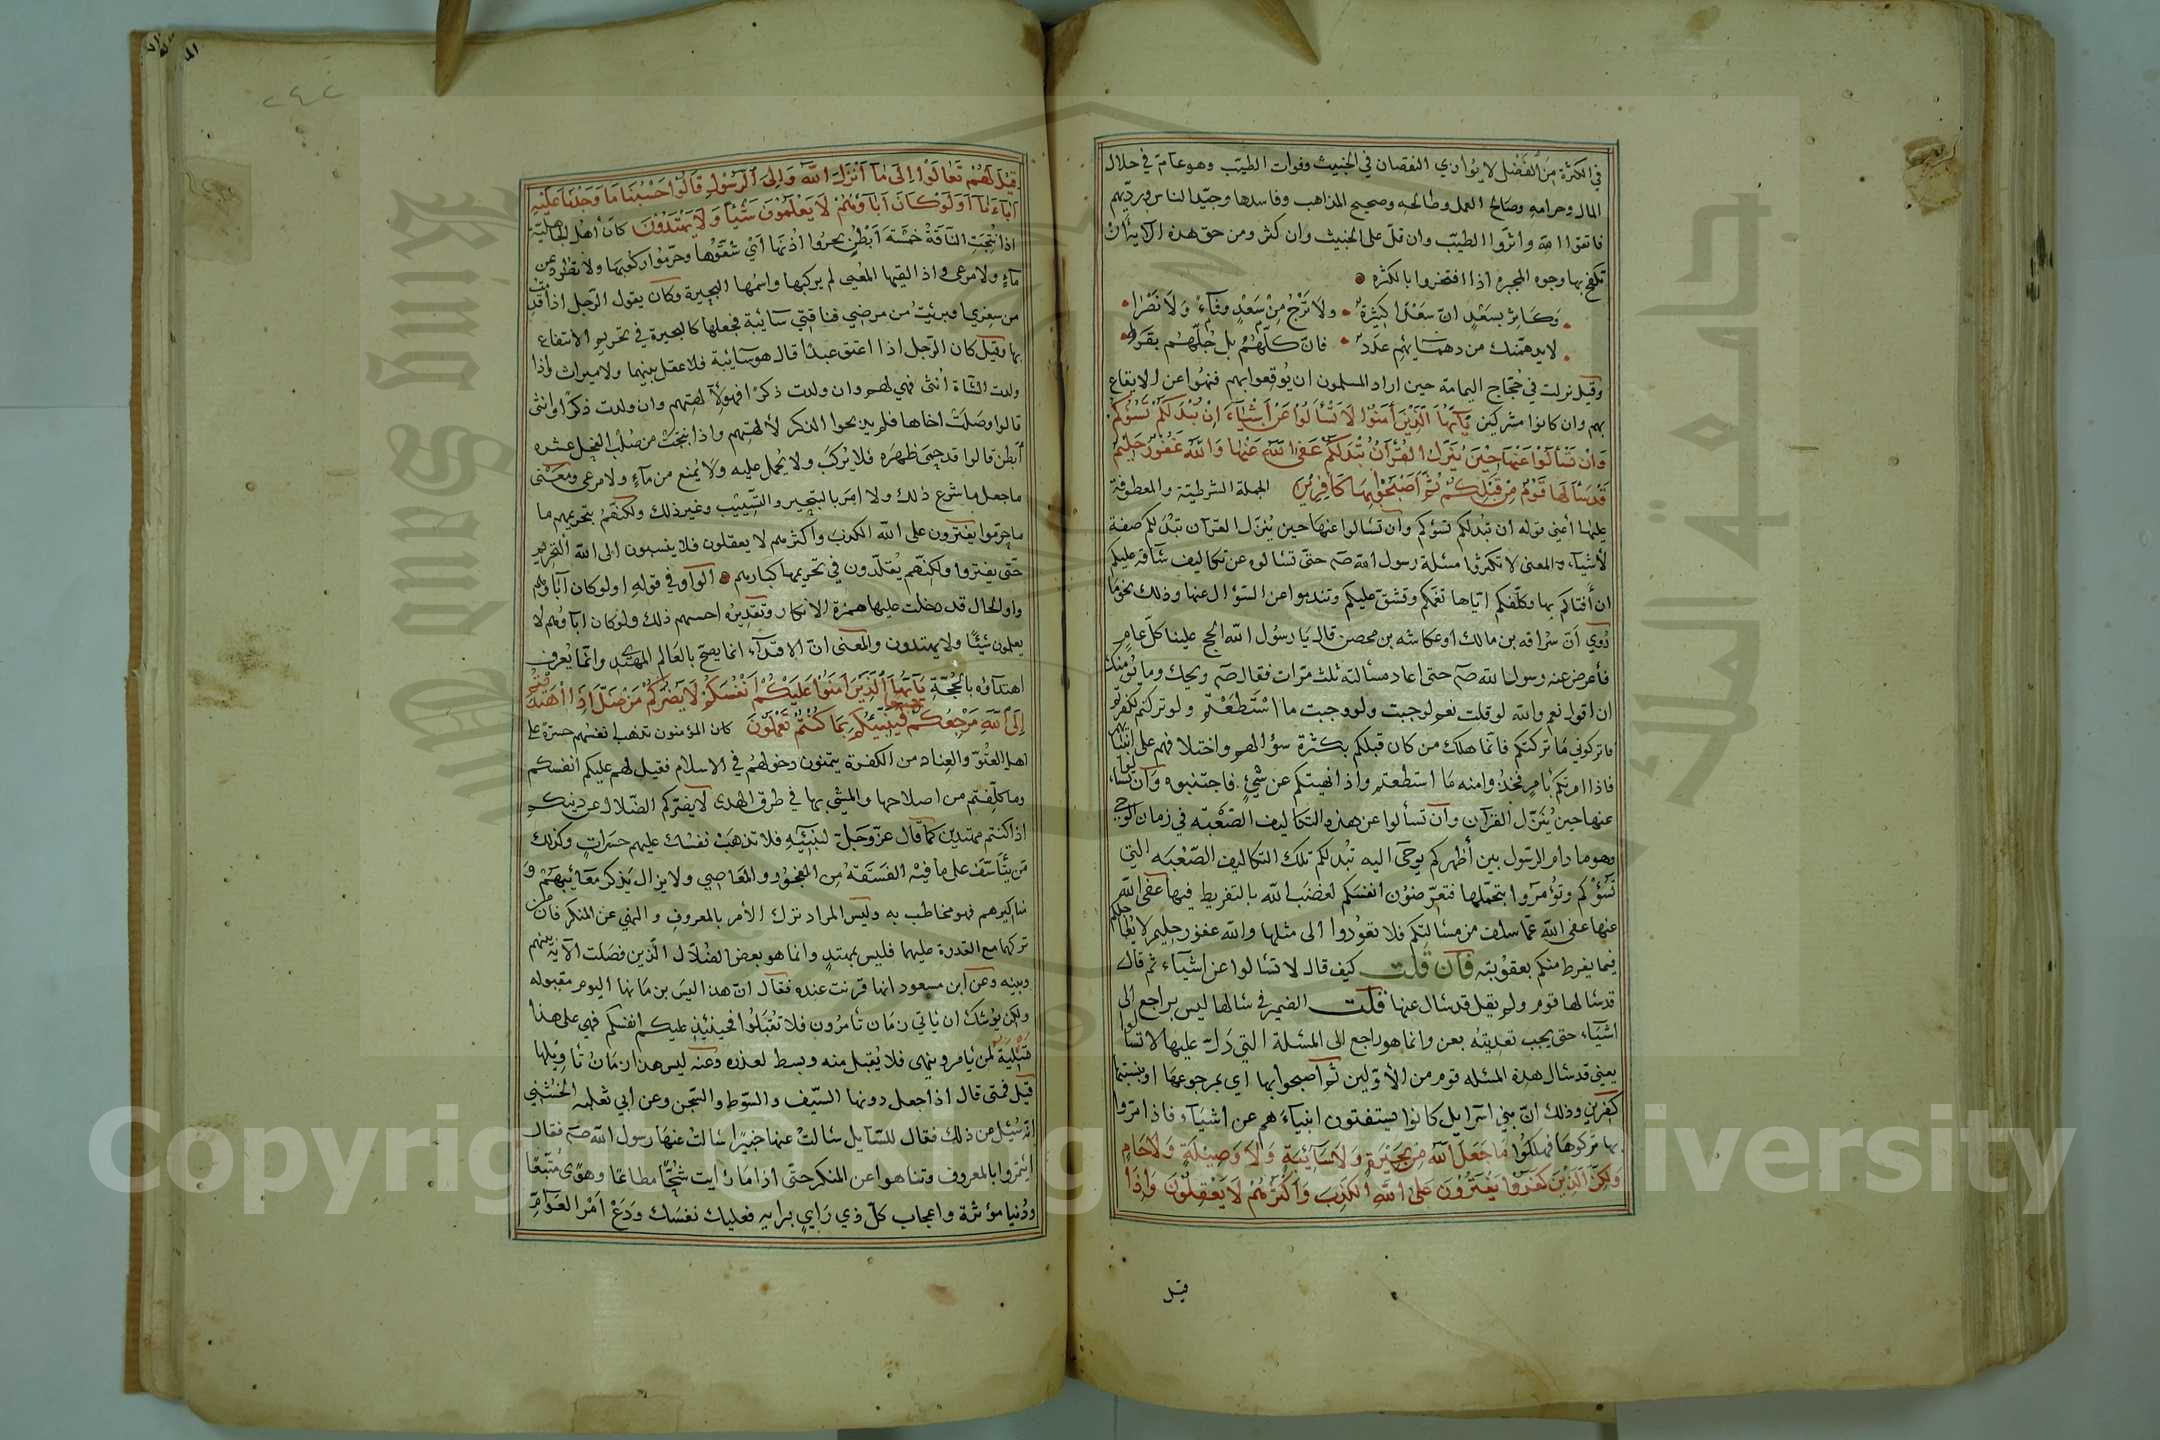 في الكثرة من الفضل لا يوازي النقصان في الخبيث وفوات الطيب وهو عام في حلال
المال وحرامه وصالح العمل وطالحه وصحيح المذاهب وفاسدها وجيد الناس ورديهم
فاتقوا الله واثروا الطيب وان قل على الخبيث وان كثر ومن حق هذه الآية أن
تكفح بها وجوه المجبرة اذا افتخروا بالكثرة
وكاثر بسعد ان سعدا كثيرة ولا ترج من سعد وفاء ولا نصرا
لا يدهمنك من دهمائهم عدد فان كلهم بل جلهم بقر
وقيل نزلت في حجاج اليمامة حين اراد المسلمون ان يوقعوا بهم فنهوا عن الايقاع
بهم وان كانوا مشركين يآيها الذين آمنوا لا تسألوا عن أشياء ان تبد لكم تسؤكم
وان تسألوا عنها حين ينزل القرآن تبد لكم عفى الله عنها والله غفور حليم
قد سألها قوم من قبلكم ثم أصبحوا بها كافرين الجملة الشرطية والمعطوفة
عليها أعني قوله ان تبد لكم تسؤكم وان تسألوا عنها حين ينزل القرآن تبد لكم صفة
لأشياء والمعنى لا تكثروا مسئلة رسول الله صم حتى تسالوه عن تكاليف شاقه عليكم
ان أفتاكم بها وكلفكم اياها تغمكم وتشق عليكم وتندموا عن السؤال عنها وذلك نحو ما
روي أن سراقه بن مالك او عكاشه بن محصن قال يا رسول الله الحج علينا كل عام
فأعرض عنه رسول الله صم حتى اعاد مسألته ثلث مرات فقال صم ويحك وما يؤمنك
ان اقول نعم والله لو قلت نعم لوجبت ولو وجبت ما استطعتم ولو تركتم لكفرتم
فاتركوني ما تركتكم فانما هلك من كان قبلكم بكثرة سؤالهم واختلافهم على انبيائهم
فاذا امرتكم بأمر فخذوا منه ما استطعتم واذا نهيتكم عن شيء فاجتنبوه وان تسألوا
عنها حين ينزل القرآن وان تسألوا عن هذه التكاليف الصعبه في زمان الوحي
وهو ما دام الرسول بين أظهركم يوحى اليه تبد لكم تلك التكاليف الصعبه التي
تسؤكم وتؤمروا بتحملها فتعرضون انفسكم لغضب الله بالتفريط فيها عفى الله
عنها عفى الله عما سلف من مسألتكم فلا تعودوا الى مثلها والله غفور حليم لا يعاجلكم
فيما يفرط منكم بعقوبته فان قلت كيف قال لا تسألوا عن اشياء ثم قال
قد سألها قوم ولم يقل قد سأل عنها قلت الضمير في سألها ليس براجع الى
اشياء حتى يجب تعديته بعن وانما هو راجع الى المسئلة التي دل عليها لا تسألوا
يعني قد سال هذه المسئله قوم من الأولين ثم أصبحوا بها اي بمرجوعها او بسببها
كفرين وذلك ان بني اسرايل كانوا يستفتون انبياءهم عن اشياء فاذا امروا
بها تركوها فهلكوا ما جعل الله من بحيرة ولا سائبة ولا وصيلة ولا حام
ولكن الذين كفروا يفترون على الله الكذب وأكثرهم لا يعقلون واذا
قيل
قيل لهم تعالوا الى ما أنزل الله والى الرسول قالوا حسبنا ما وجدنا عليه
آباءنا أولو كان آباؤهم لا يعلمون شيئا ولا يهتدون كان أهل الجاهلية
اذا نتجت الناقة خمسة أبطن بحروا أذنها أي شقوها وحرموا ركوبها ولا تطرد عن
ماء ولا مرعى واذا لقيها المعيى لم يركبها واسمها البحيرة وكان يقول الرجل اذا قدمت
من سفري او برئيت من مرضي فناقتي سائبة فجعلها كالبحيرة في تحريم الانتفاع
بها وقيل كان الرجل اذا اعتق عبدا قال هو سائبة فلا عقل بينهما ولا ميراث واذا
ولدت الشاة أنثى فهي لهم وان ولدت ذكرا فهو لآلهتهم وان ولدت ذكرا وانثى
قالوا وصلت اخاها فلم يذبحوا الذكر لألهتهم واذا نتجت من صلب الفحل عشرة
أبطن قالوا قد حمى ظهره فلا يركب ولا يحمل عليه ولا يمنع من ماء ولا مرعى ومعنى
ما جعل ما شرع ذلك ولا امر بالتبحير والتسييب وغير ذلك ولكنهم بتحريمهم ما
ما حرموا يفترون على الله الكذب وأكثرهم لا يعقلون فلا ينسبون الى الله التحريم
حتى يفتروا ولكنهم يقلدون في تحريمها كبارهم الواو في قوله اولو كان آباؤهم
واو الحال قد دخلت عليها همزة الانكار وتقديره احسبهم ذلك ولو كان اباؤهم لا
يعلمون شيئا ولا يهتدون والمعنى ان الاقتداء انما يصح بالعالم المهتدي وانما يعرف
اهتداؤه بالحجة يآيها الذين آمنوا عليكم أنفسكم لا يضركم من ضل اذا اهتديتم
الى الله مرجعكم جميعا فينبئكم بما كنتم تعملون كان المؤمنون تذهب انفسهم حسرة على
اهل العتو والعناد من الكفرة يتمنون دخولهم في الاسلام فقيل لهم عليكم انفسكم
وما كلفتم من اصلاحها والمشي بها في طرق الهدى لا يضركم الضلال عن دينكم
اذا كنتم مهتدين كما قال عز وجل لنبيه فلا تذهب نفسك عليهم حسرات وكذلك
من يتأسف على ما فيه الفسقة من الفجور والمعاصي ولا يزال يذكر معائبهم و
مناكيرهم فهو مخاطب به وليس المراد ترك الأمر بالمعروف والنهي عن المنكر فان من
تركها مع القدرة عليها فليس بمهتد وانما هو بعض الضلال الذين فصلت الآية بينهم
وبينه وعن ابن مسعود انها قرئت عنده فقال ان هذا ليس بزمانها انها اليوم مقبوله
ولكن يوشك ان ياتي زمان تأمرون فلا تقبلوا فحينئذ عليكم انفسكم فهي على هذا
تسلية لمن يامر وينهى فلا يقبل منه وبسط لعذره وعنه ليس هذا زمان تأويلها
قيل فمتى قال اذا جعل دونها السيف والسوط والسجن وعن ابي ثعلبه الخشني
انه سئل عن ذلك فقال للسايل سألت عنها خبيرا سألت عنها رسول الله صم فقال
ايتمروا بالمعروف وتناهوا عن المنكر حتى اذا ما رأيت شحا مطاعا وهوى متبعا
ودنيا مؤثرة واعجاب كل ذي رأي برايه فعليك نفسك ودع أمر العوام
Copyright © King Saud University